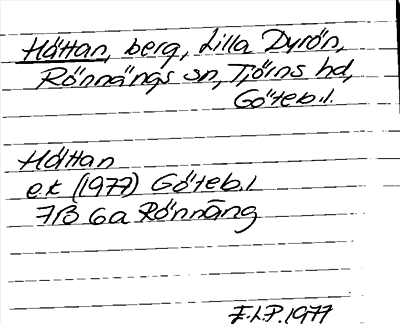 Håttan, berg, Lilla Dyrön,
Rönnängs sn, Tjörns hd,
Göteb.l.
Håttan
ek (1977) Göteb.l
7B 6a Rönnäng
F.I.P. 1977